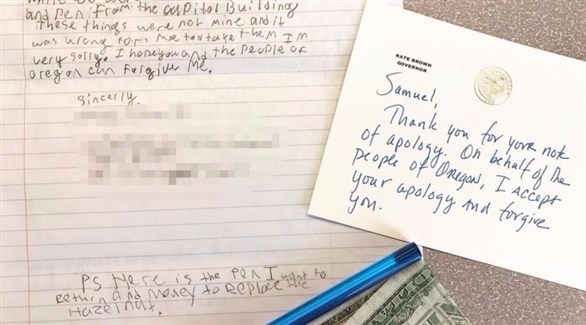 and pen from the capitol Building
These things were not mine and it
was wrong for me to take them I'm
very sorry. I hope you and the People of
oregon can forgive Me.
Sincerly,
PS Here is the Pen I want to
return and Money to Replace the
Hazelnut.
KATE BROWN
GOVERNOR
Samuel,
Thank you for your note
of apology. On behalf of the
people of Oregon, I accept
your apology and forgive
you.